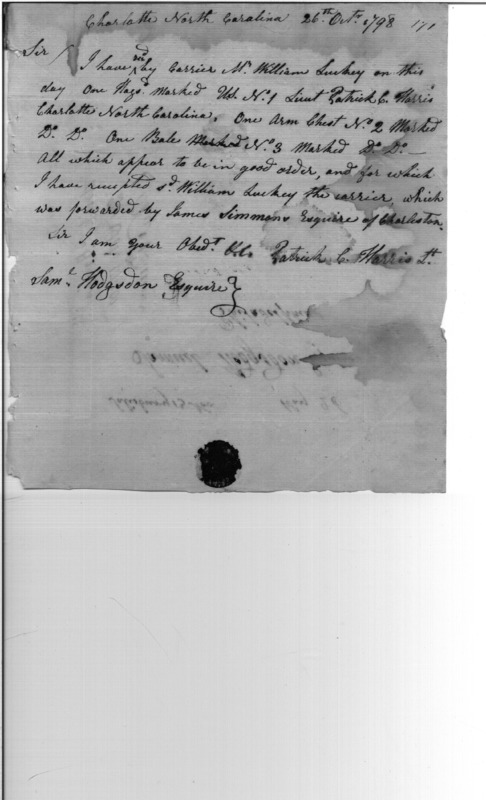 Charlotte North Carolina 26th Octr 1798 171
Sir /
I have recd by Carrier Mr William Luckey on this
day One Hogd. Marked US. No. 1 Lieut Patrick C. Harris
Charlotte North Carolina. One Arm Chest No. 2 Marked
Do. Do. One Bale Marked No. 3 Marked Do. Do.
All which appear to be in good order, and for which
I have recepted sd. William Luckey the carrier, which
was forwarded by James Simmons Esquire of Charleston.
Sir I am your Obedt. &c. Patrick C. Harris Lt.
Saml. Hodgsdon Esquire